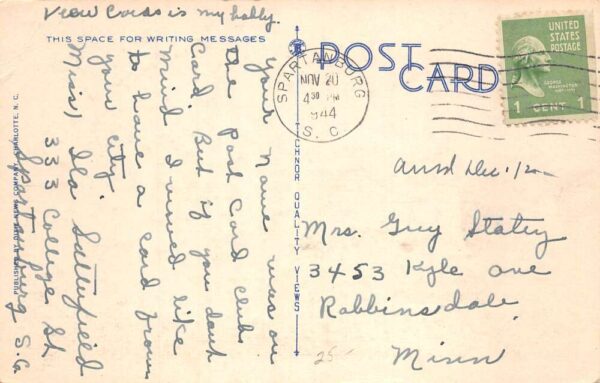 View Cards is my hobby.
THIS SPACE FOR WRITING MESSAGES
Your name was on
the post card club
Card. But if you dont
mind I would like
to have a card from
your city.
(Miss) Ila Satterfield
333 College St
Spartanburg S.C.
PUBLISHED BY ASHEVILLE POST CARD
CHARLOTTE, N. C.
TECHNOR QUALITY VIEWS
POST
CARD
SPARTANBURG
NOV 20
4 30 PM
1944
S. C.
UNITED
STATES
POSTAGE
GEORGE
WASHINGTON
1 CENT 1
Ansd Dec. 12 -
Mrs. Guy Statey
3453 Kyle ave
Robbinsdale
Minn
25